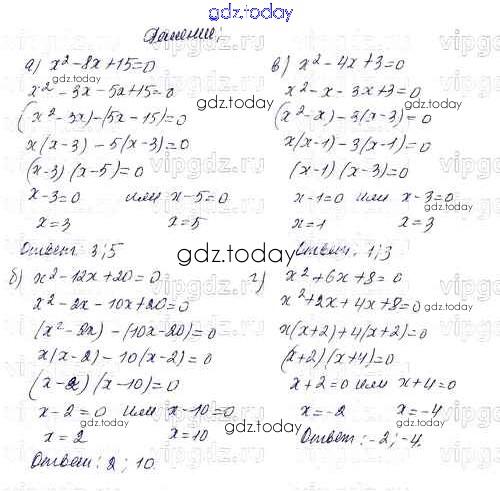 gdz.today
Решение:
а) x² - 8x + 15 = 0
x² - 3x - 5x + 15 = 0
(x² - 3x) - (5x - 15) = 0
x(x - 3) - 5(x - 3) = 0
(x - 3) (x - 5) = 0
x - 3 = 0 или x - 5 = 0
x = 3 x = 5
Ответ: 3; 5
б) x² - 12x + 20 = 0
x² - 2x - 10x + 20 = 0
(x² - 2x) - (10x - 20) = 0
x(x - 2) - 10(x - 2) = 0
(x - 2) (x - 10) = 0
x - 2 = 0 или x - 10 = 0
x = 2 x = 10
Ответ: 2; 10
в) x² - 4x + 3 = 0
x² - x - 3x + 3 = 0
(x² - x) - 3(x - 3) = 0
x(x - 1) - 3(x - 1) = 0
(x - 1) (x - 3) = 0
x - 1 = 0 или x - 3 = 0
x = 1 x = 3
Ответ: 1; 3
г) x² + 6x + 8 = 0
x² + 2x + 4x + 8 = 0
x(x + 2) + 4(x + 2) = 0
(x + 2) (x + 4) = 0
x + 2 = 0 или x + 4 = 0
x = -2 x = -4
Ответ: -2; -4.
gdz.today
gdz.today